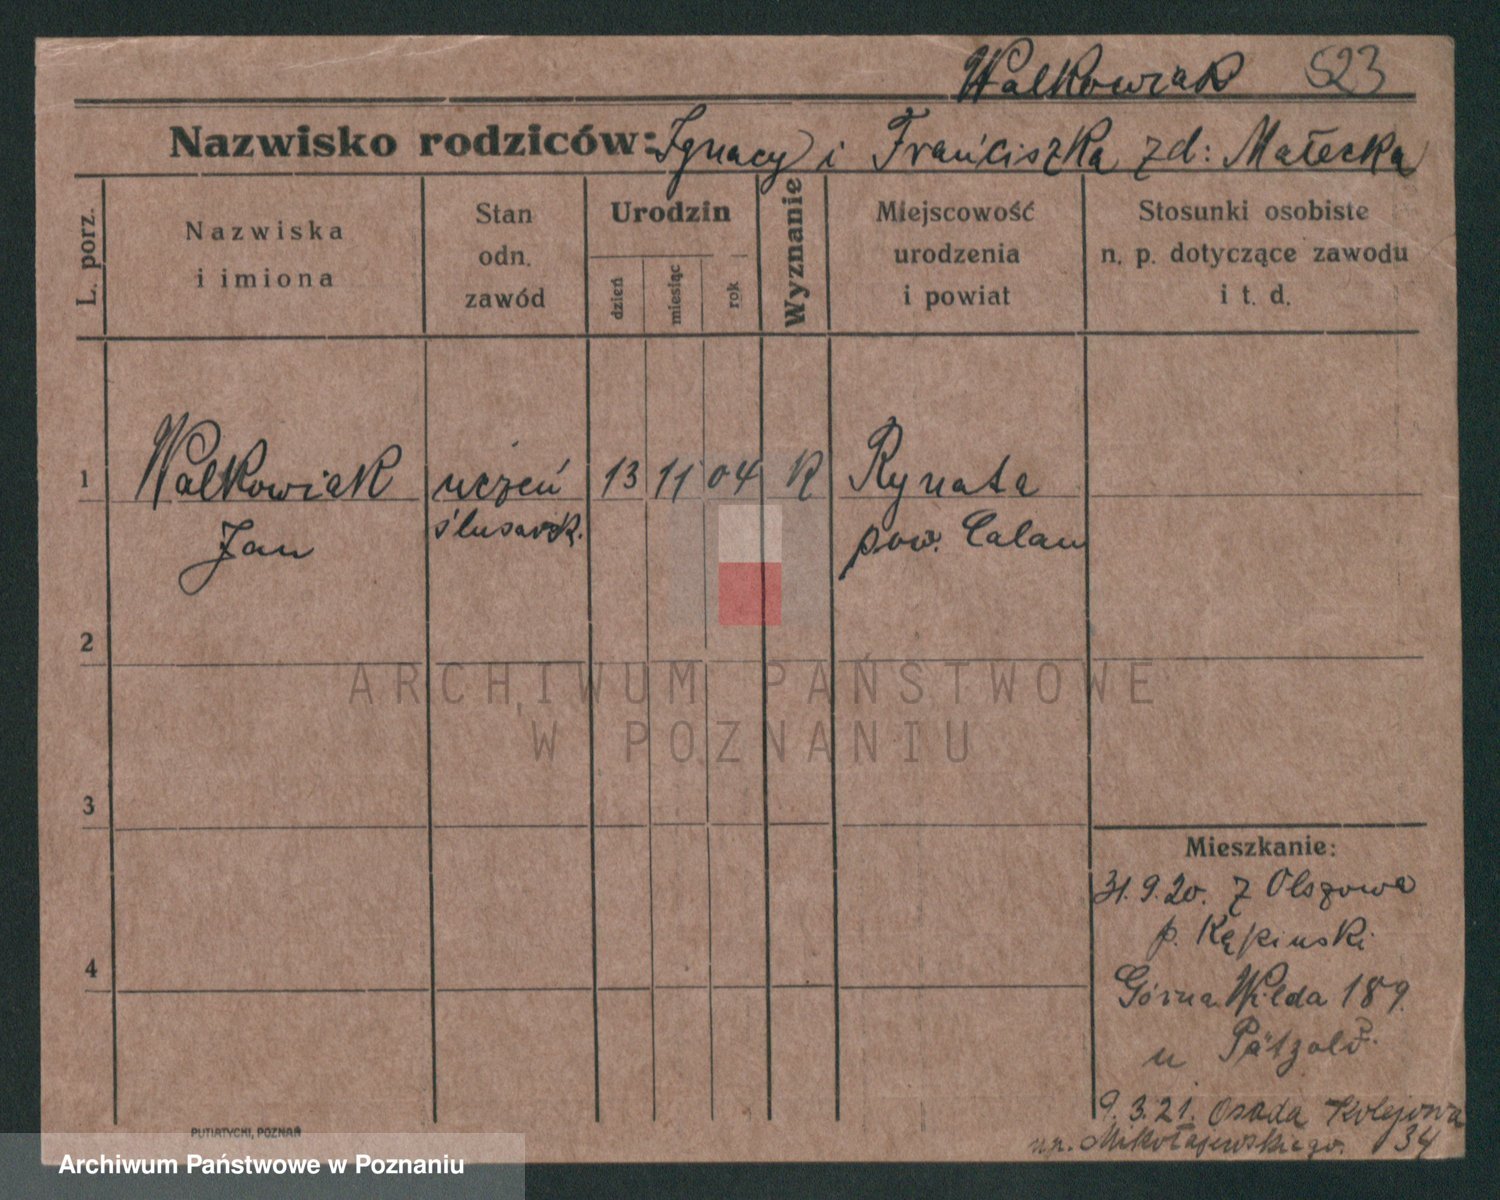 Walkowiak 523
Nazwisko rodziców: Ignacy i Franciszka zd: Małecka
L. porz.
Nazwiska
i imiona
Stan
odn.
zawód
Urodzin
dzień
miesiąc
rok
Wyznanie
Miejscowość
urodzenia
i powiat
Stosunki osobiste
n. p. dotyczące zawodu
i t. d.
1 Walkowiak uczeń 13 11 04 K Rynata
Jan ślusarsk. pow. Calau
2
3
4
Mieszkanie:
31.9.20. z Olszowa
p. Kępiński
Górna Wilda 189.
u Pätzold
9.3.21. Osada Kolejowa
np. Mikołajewskiego. 34
PUTIATYCKI, POZNAŃ
ARCHIWUM PAŃSTWOWE
W POZNANIU
Archiwum Państwowe w Poznaniu